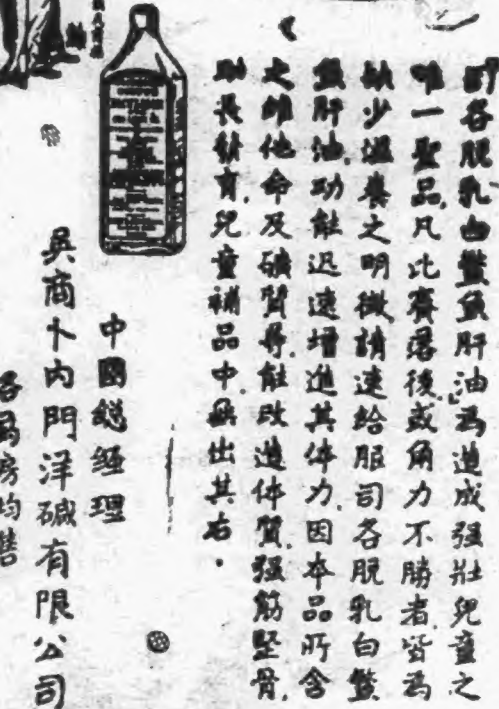 司各脫乳白鰵魚肝油為造成强壯兒童之
唯一聖品。凡比賽落後或角力不勝者,皆為
缺少滋養之明徵,請速給服司各脫乳白鰵
魚肝油,功能迅速增進其体力,因本品所含
之維他命及礦質等,能改造体質,强筋堅骨,
助長發育,兒童補品中無出其右.
中國総經理
英商卜內門洋碱有限公司
各藥房均售